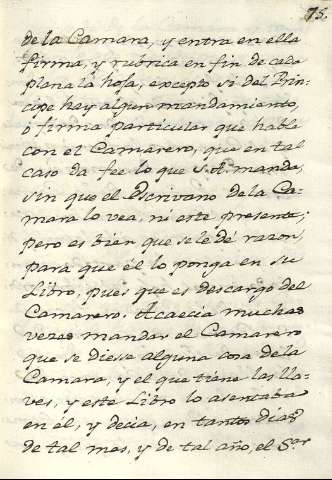 75.
de la Camara, y entra en ella
firma, y rubrica en fin de cada
plana la hoja, excepto si del Prin-
cipe hay algun mandamiento,
ò firma particular que hable
con el Camarero, que en tal
caso da fee lo que S. A. manda,
sin que el Escrivano de la Ca-
mara lo vea, ni esté presente;
pero es bien que se le dé razon,
para que él lo ponga en su
Libro, pues que es descargo del
Camarero. Acaecia muchas
vezes mandar el Camarero
que se diesse alguna cosa de la
Camara, y el que tiene las lla-
ves, y este Libro lo asentaba
en el, y decia, en tantos dias
de tal mes, y de tal año, el S.or